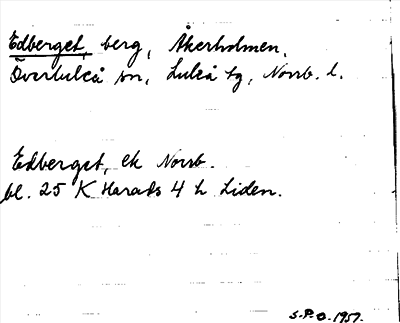 Edberget, berg, Åkerholmen.
Överluleå sn, Luleå tg, Norrb. l.
Edberget, ek Norrb.
bl. 25 K Harads 4 h Liden.
S.P.O. 1957.